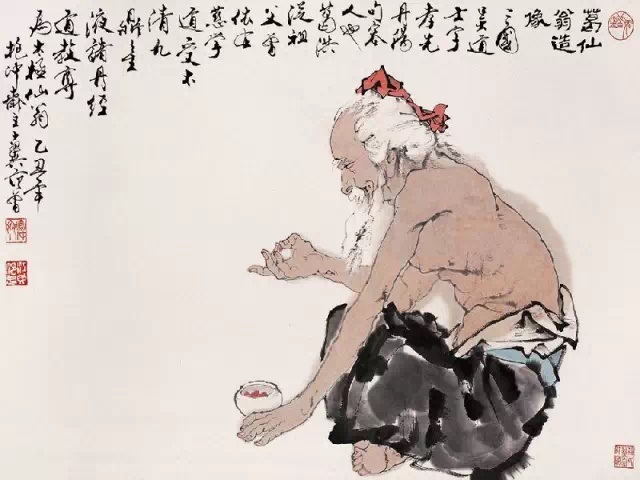 葛仙
翁造
像
三國
吳道
士字
孝先
丹陽
句容
人也
葛洪
從祖
父曾
依左
慈學
道受太
清九
鼎金
液諸丹經
道教尊
為太極仙翁 乙丑年
抱沖齋主十翼范曾